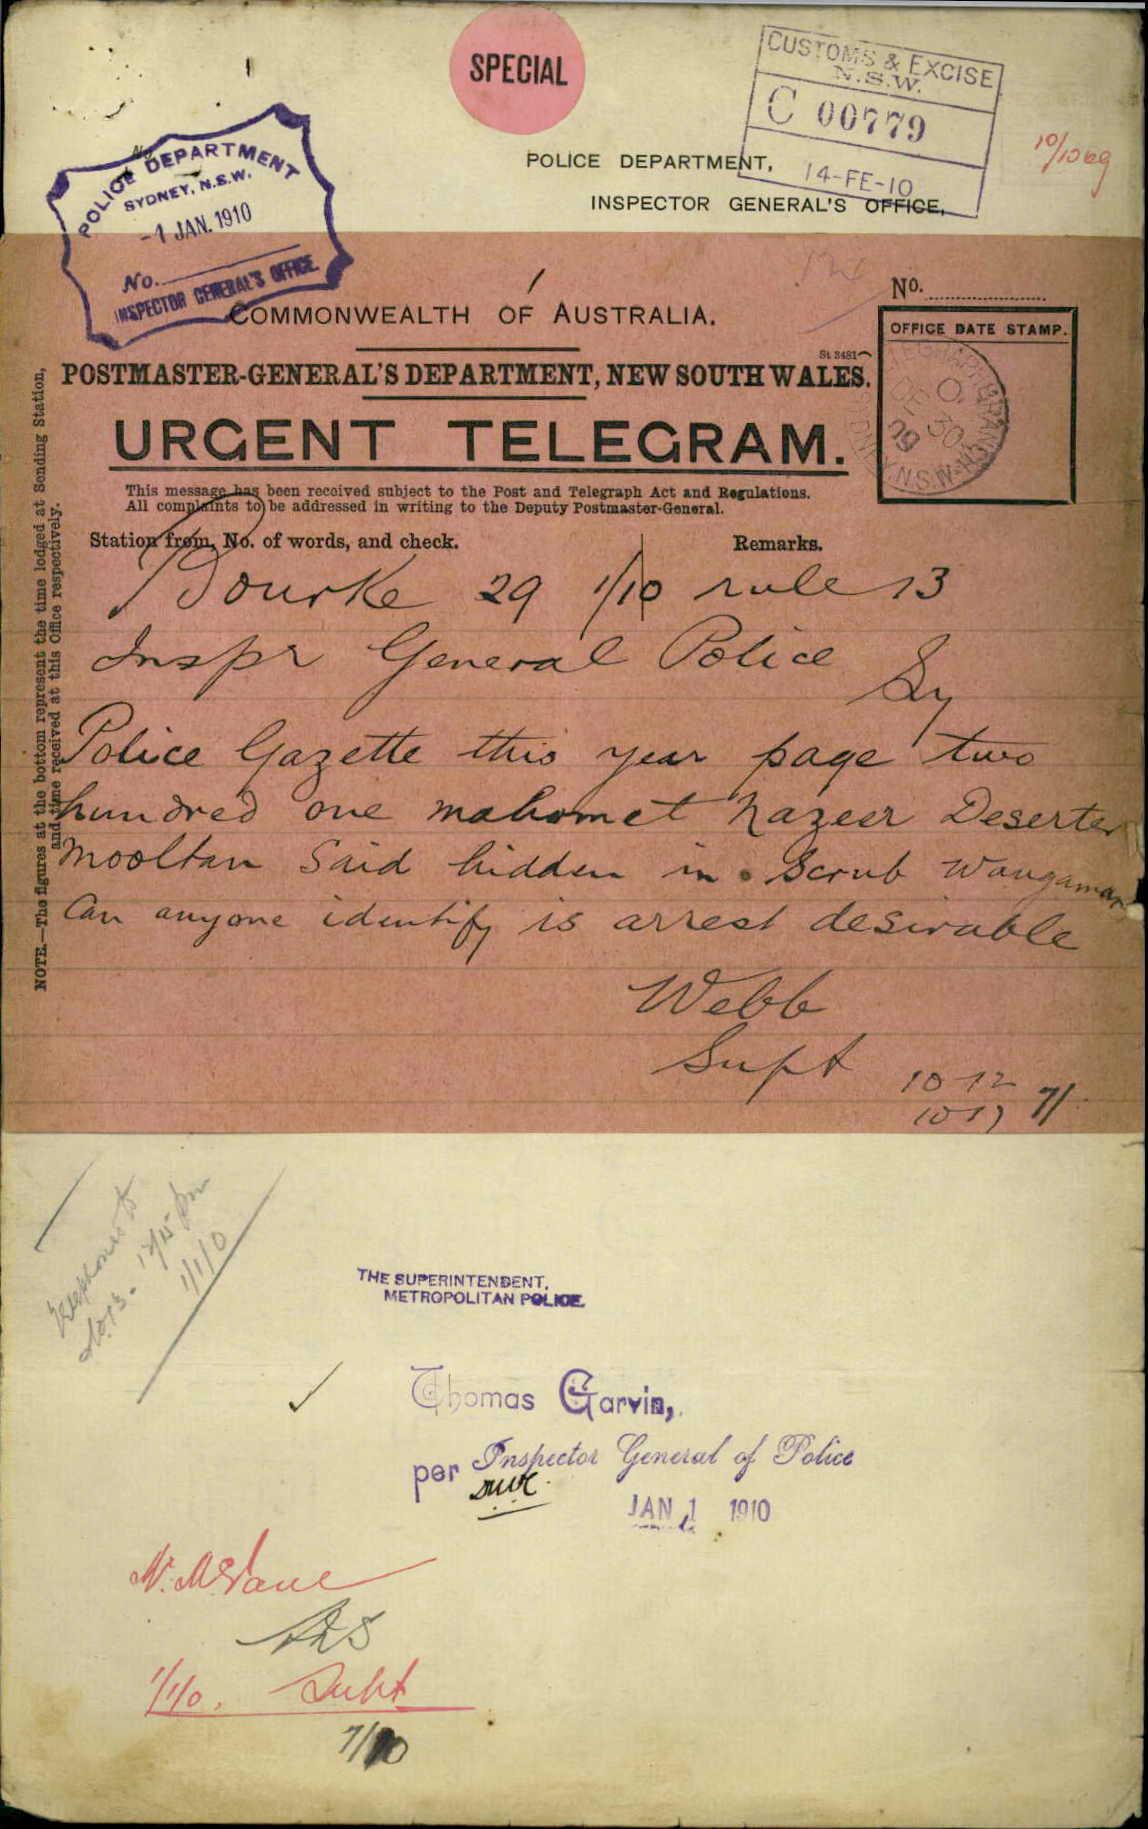 SPECIAL
CUSTOMS & EXCISE
N.S.W.
C 00779
14-FE-10
10/1069
POLICE DEPARTMENT
SYDNEY, N.S.W.
-1 JAN. 1910
No.
INSPECTOR GENERAL'S OFFICE
POLICE DEPARTMENT,
INSPECTOR GENERAL'S OFFICE,
COMMONWEALTH OF AUSTRALIA.
No.
St 3481
POSTMASTER-GENERAL'S DEPARTMENT, NEW SOUTH WALES.
OFFICE DATE STAMP.
URGENT TELEGRAM.
This message has been received subject to the Post and Telegraph Act and Regulations.
All complaints to be addressed in writing to the Deputy Postmaster-General.
Station from, No. of words, and check.
Remarks.
NOTE.—The figures at the bottom represent the time lodged at Sending Station,
and time received at this Office respectively.
Bourke 29 1/10 rule 13
Inspr General Police
Sy
Police Gazette this year page two
hundred one mahomet Nazeer Deserter
Mooltan Said hidden in Scrub Wangamana
Can anyone identify is arrest desirable
Webb
Supt
10-12
7/
1/1/10
THE SUPERINTENDENT,
METROPOLITAN POLICE.
Thomas Garvin,
Inspector General of Police
per
JAN 1 1910
1/1/10. Supt